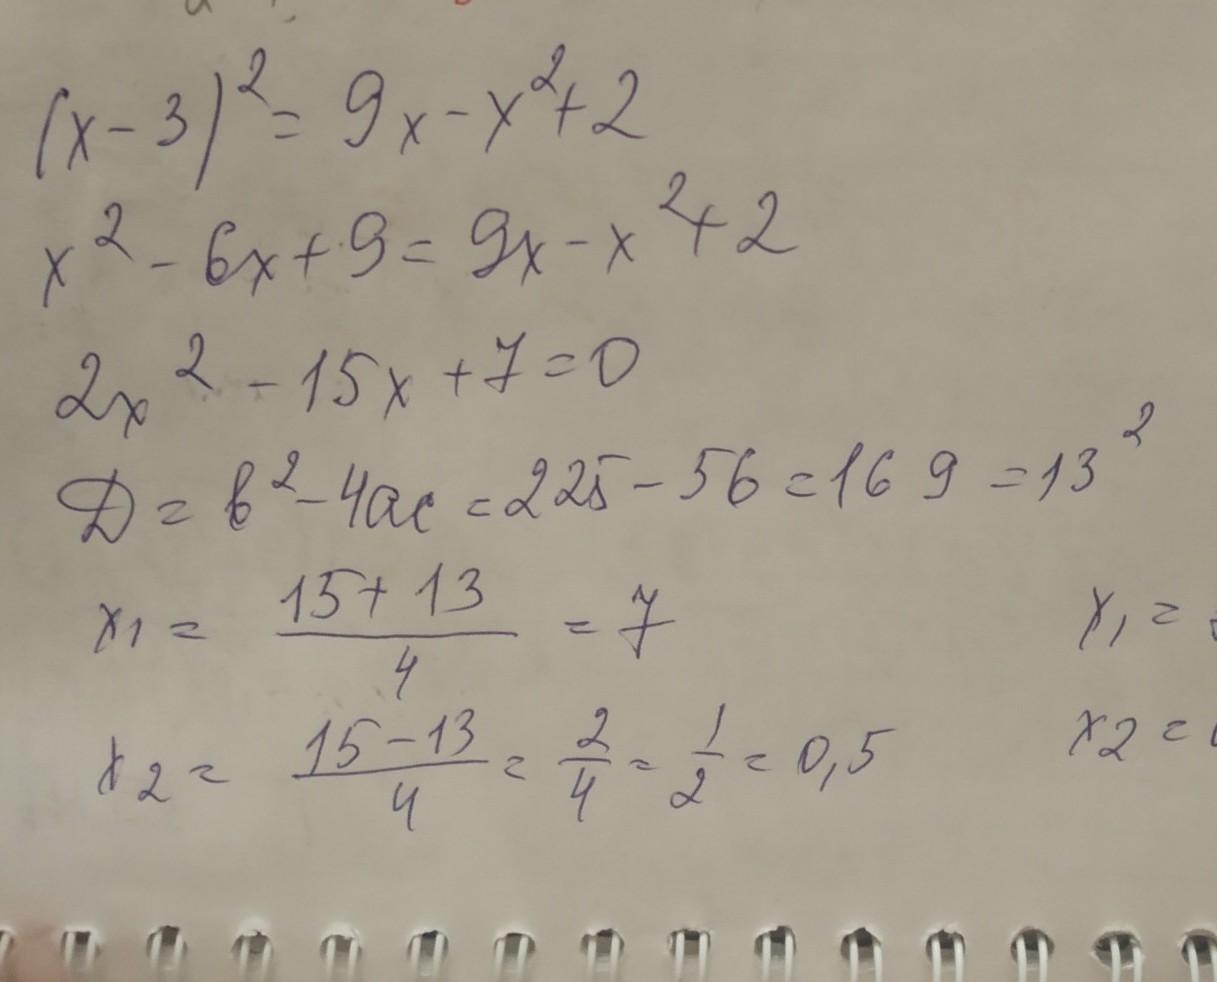 (x-3)² = 9x-x²+2
x² - 6x + 9 = 9x - x² + 2
2x² - 15x + 7 = 0
D = b² - 4ac = 225 - 56 = 169 = 13²
x₁ = (15+13)/4 = 7
x₁ =
x₂ = (15-13)/4 = 2/4 = 1/2 = 0,5
x₂ =